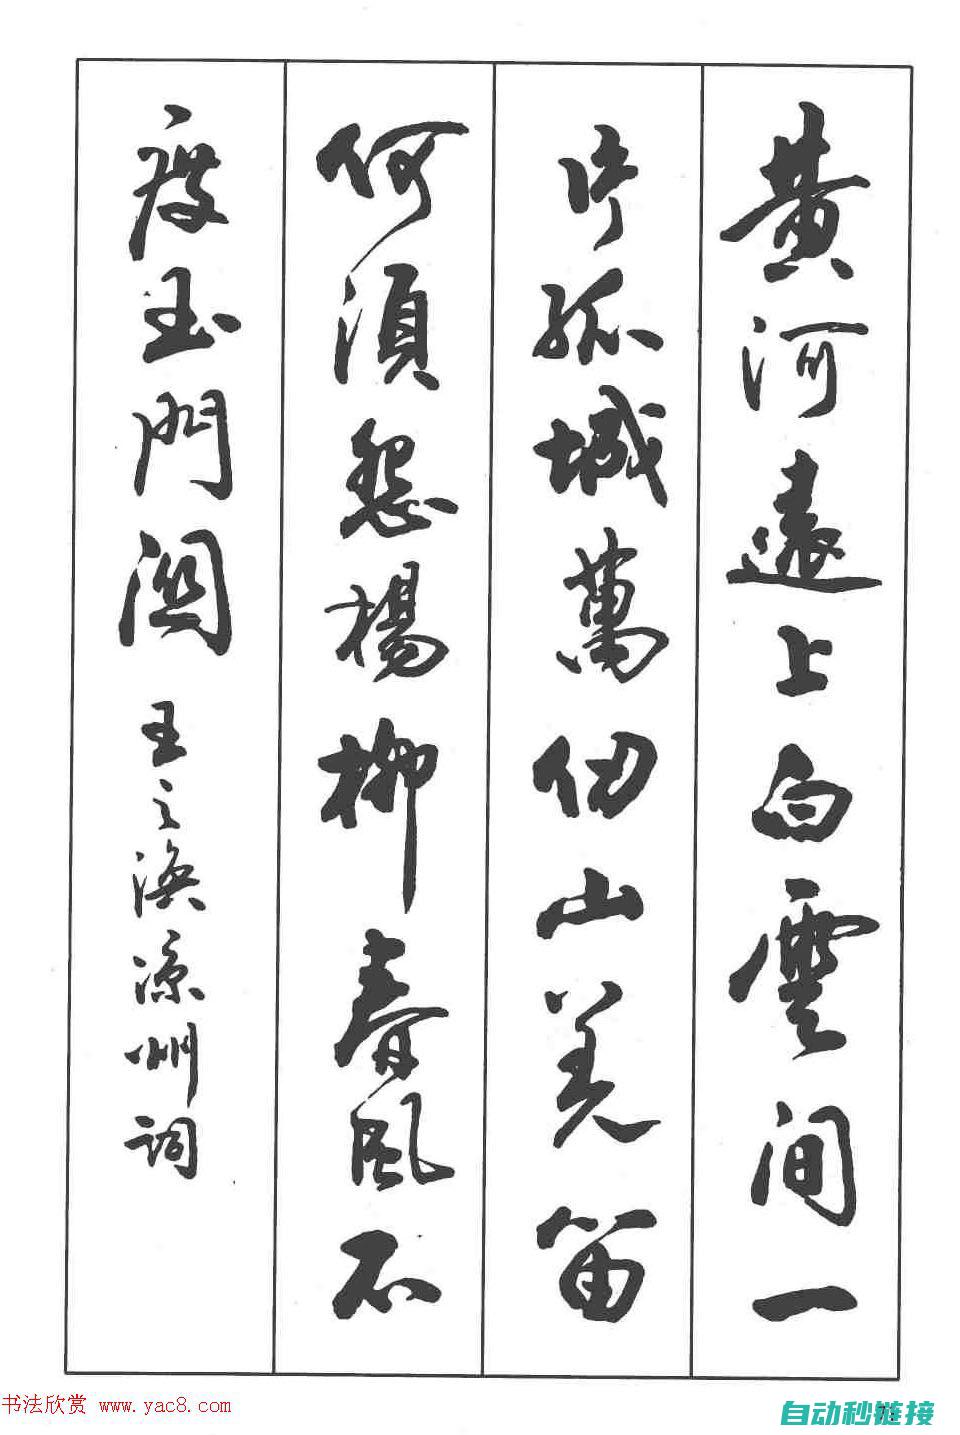 黄河遠上白雲间一
片孤城萬仞山羌笛
何須怨楊柳春風不
度玉門関王之渙凉州詞
书法欣赏 www.yac8.com
自动秒链接